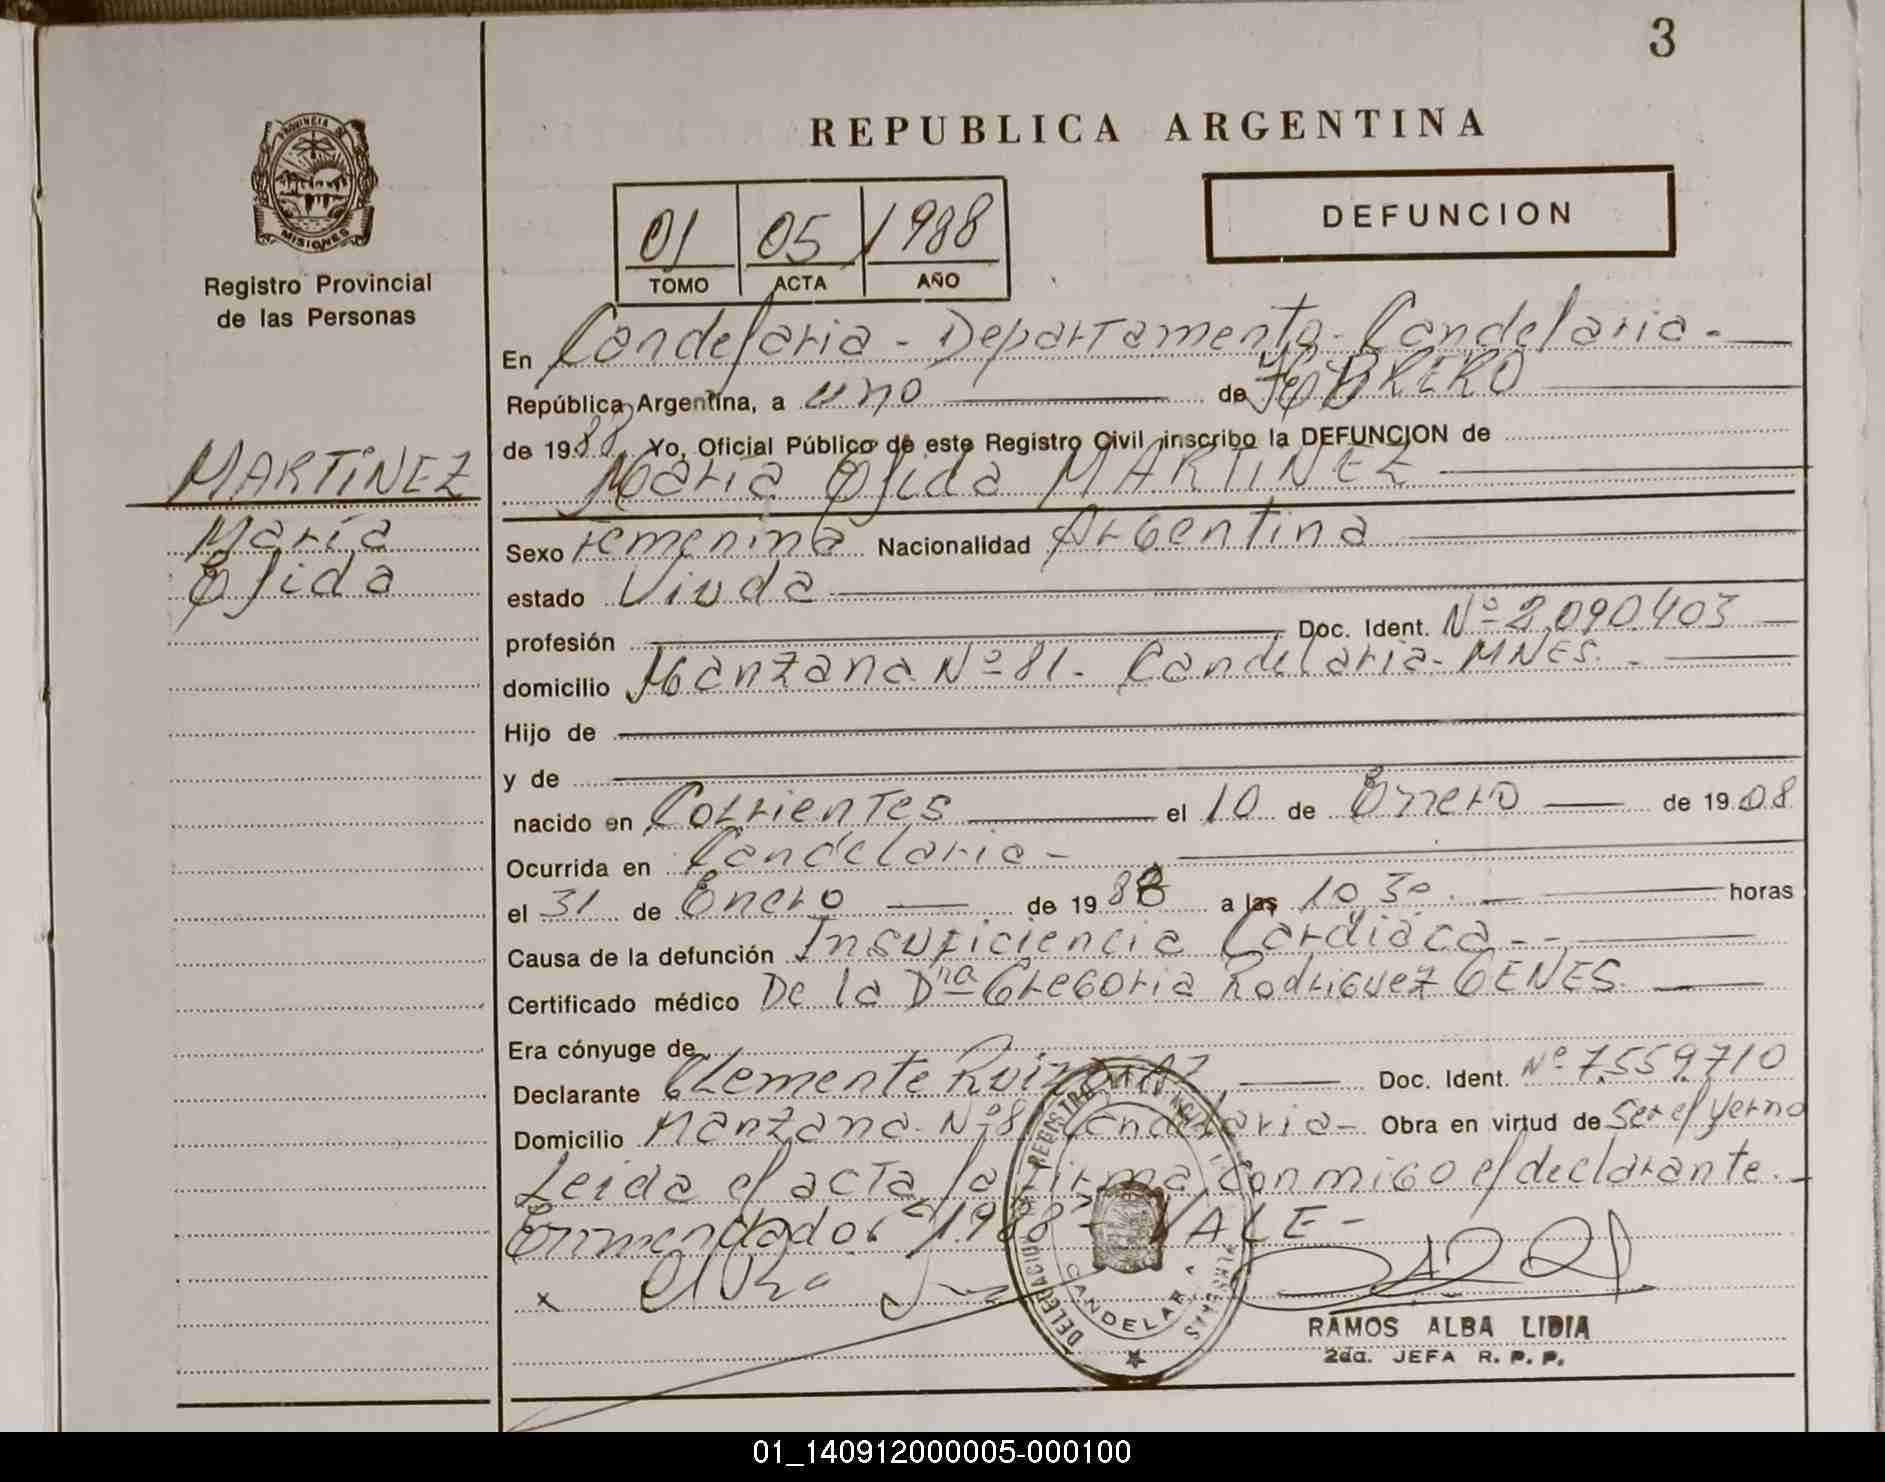 3
REPUBLICA ARGENTINA
PROVINCIA DE
MISIONES
Registro Provincial
de las Personas
01 05 1988
TOMO ACTA AÑO
DEFUNCION
En Candelaria - Departamento - Candelaria -
República Argentina, a uno de FeBRERO
de 1988 Yo, Oficial Público de este Registro Civil inscribo la DEFUNCION de
MARTíNEZ
María Elida MARTíNEZ
María
Elida
Sexo Femenina Nacionalidad Argentina
estado Viuda
profesión Doc. Ident. Nº 2.090.403
domicilio Manzana Nº 81 - Candelaria - MNES. -
Hijo de
y de
nacido en Corrientes el 10 de Enero de 1908
Ocurrida en Candelaria -
el 31 de Enero de 1988 a las 10 30 horas
Causa de la defunción Insuficiencia Cardiáca - -
Certificado médico De la Dra Gregoria Rodriguez GENES.
Era cónyuge de
Declarante Clemente Ruiz Doc. Ident. Nº 7.559.710
Domicilio Manzana Nº 81 Candelaria - Obra en virtud de ser el yerno
Leida el acta la firma conmigo el declarante. -
Enmendados "1988" - VALE -
x
DELEGACION REGISTRO PROVINCIAL
PERSONAS
CANDELARIA
RAMOS ALBA LIDIA
2da. JEFA R. P. P.
01_140912000005-000100